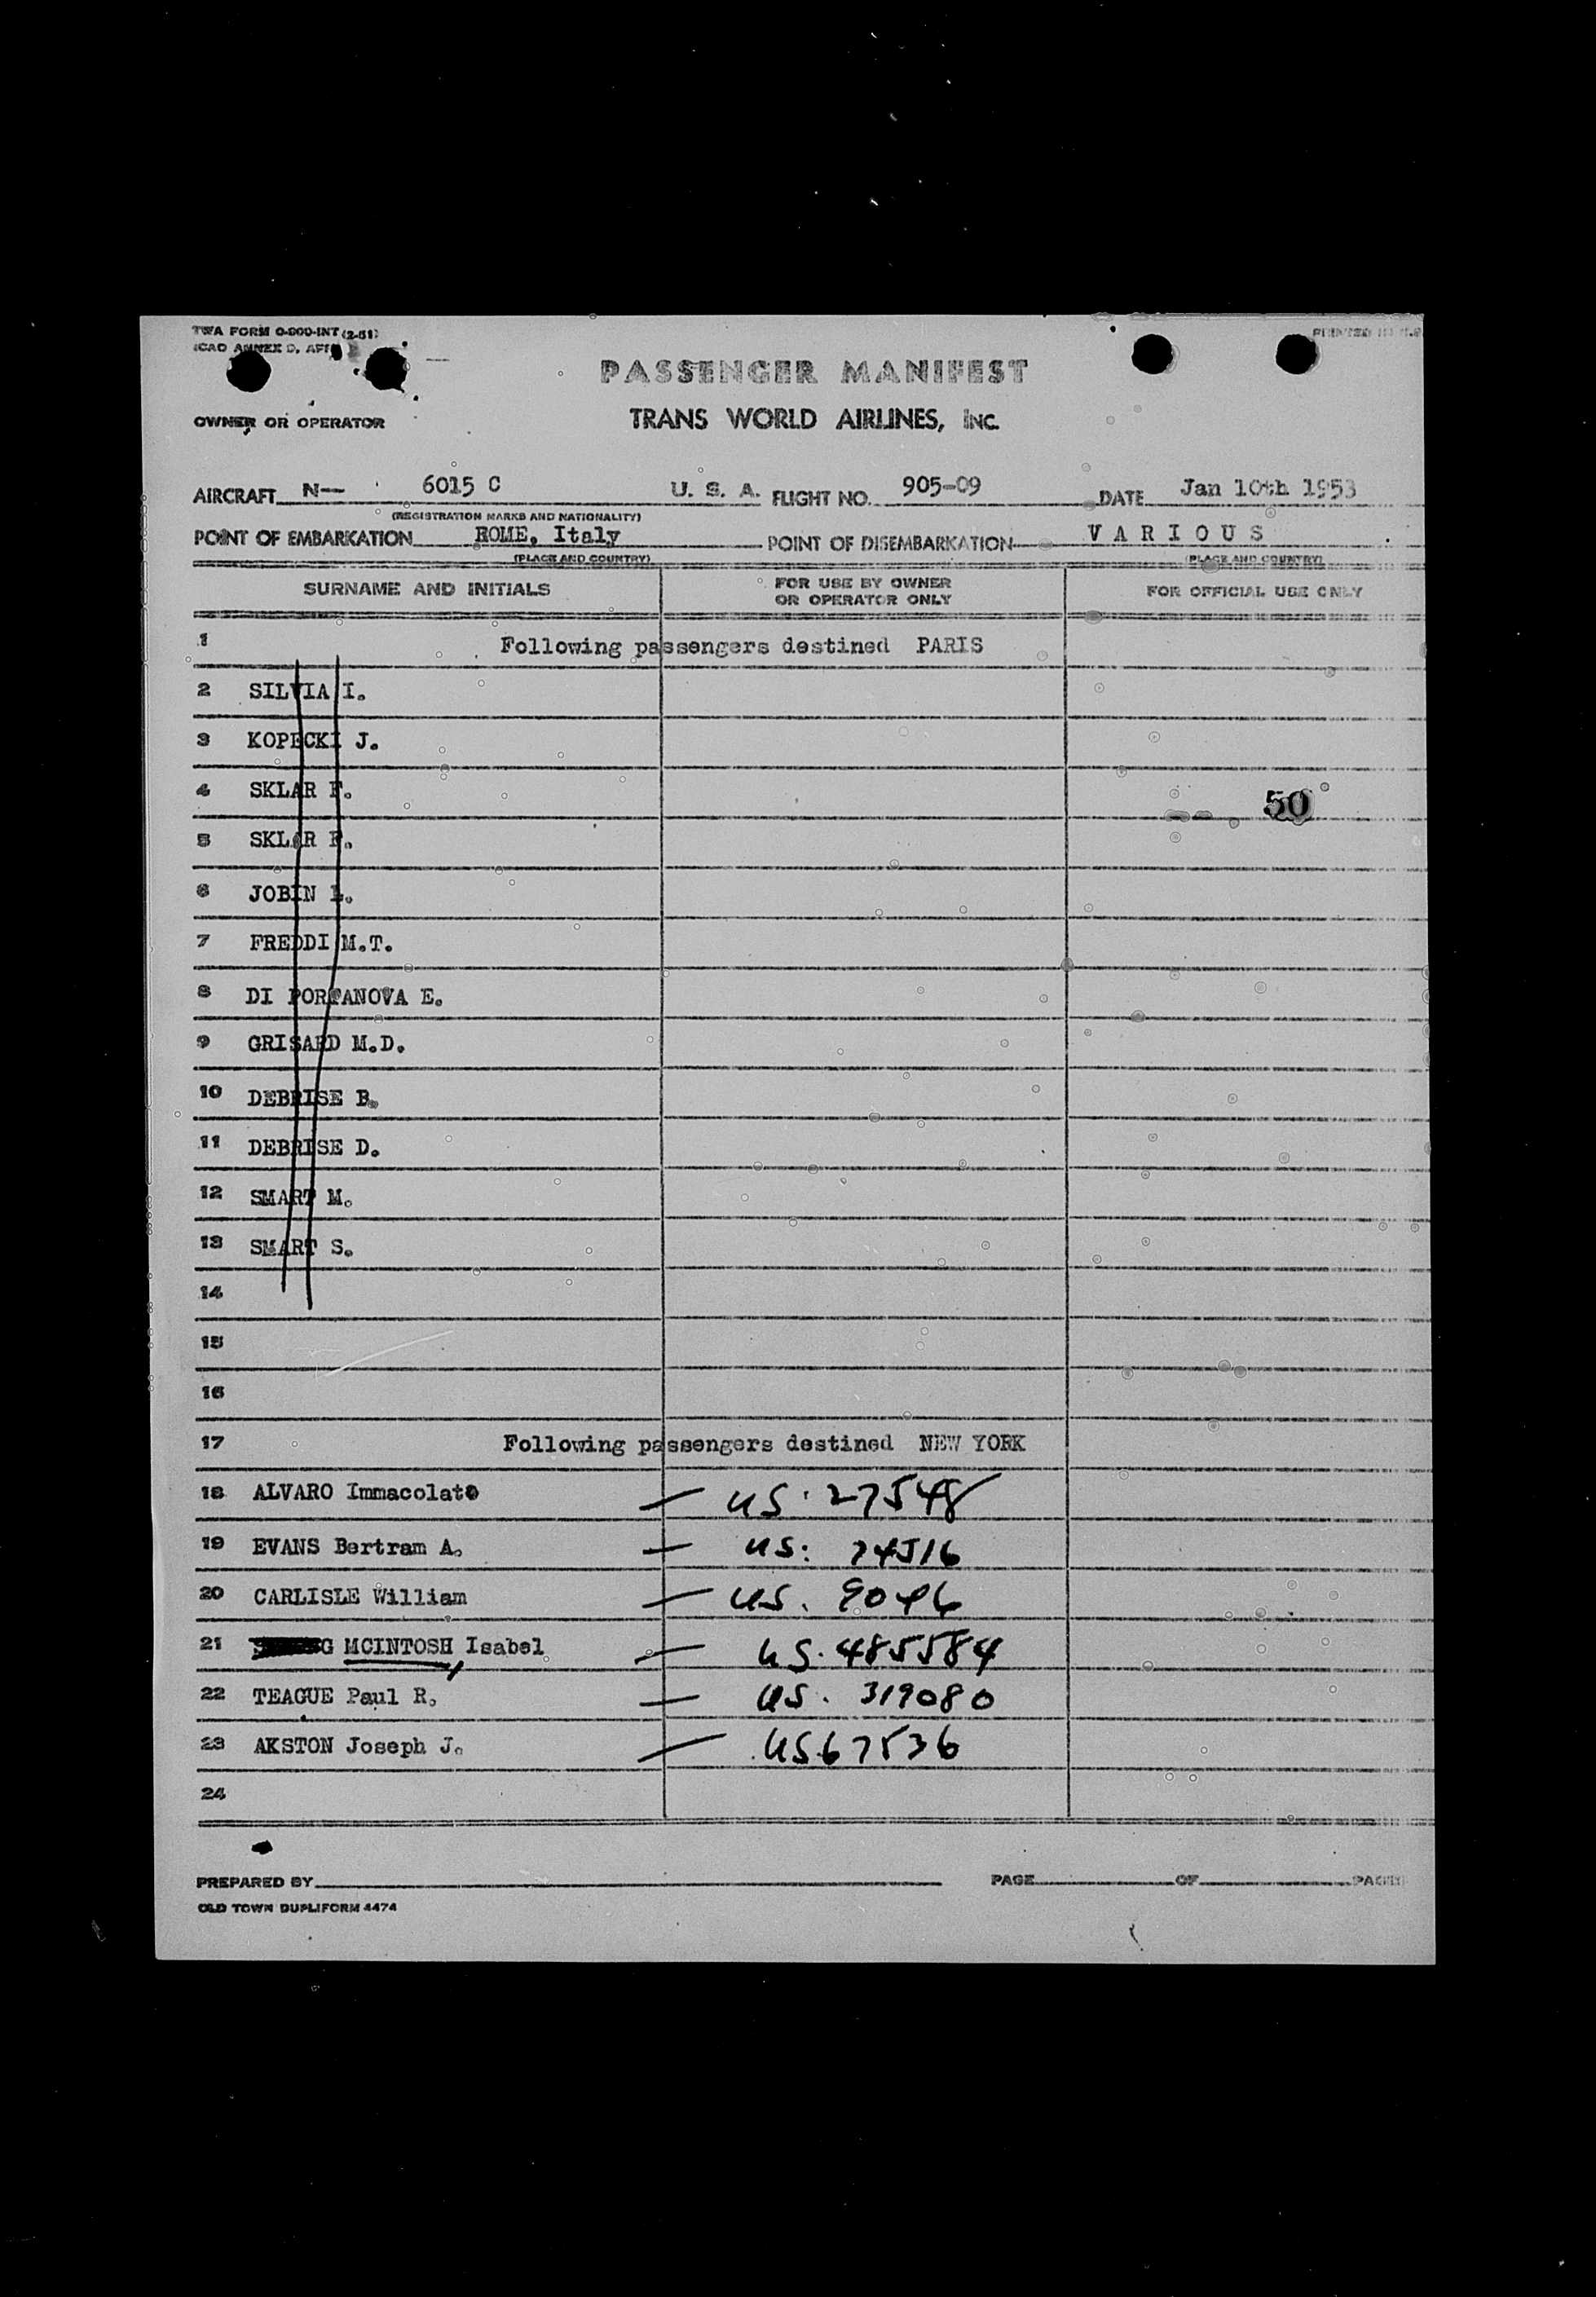 TWA FORM O-800-INT (2-51)
ICAO ANNEX 9, APP
PRINTED IN U.S.
PASSENGER MANIFEST
OWNER OR OPERATOR
TRANS WORLD AIRLINES, INC.
AIRCRAFT N— 6015 C U. S. A. FLIGHT NO. 905-09 DATE Jan 10th 1953
(REGISTRATION MARKS AND NATIONALITY)
POINT OF EMBARKATION ROME, Italy POINT OF DISEMBARKATION V A R I O U S
(PLACE AND COUNTRY) (PLACE AND COUNTRY)
SURNAME AND INITIALS FOR USE BY OWNER OR OPERATOR ONLY FOR OFFICIAL USE ONLY
1 Following passengers destined PARIS
2 SILVIA I.
3 KOPECKI J.
4 SKLAR F. 50
5 SKLAR F.
6 JOBIN L.
7 FREDDI M.T.
8 DI PORTANOVA E.
9 GRISARD M.D.
10 DEBRISE B.
11 DEBRISE D.
12 SMART M.
13 SMART S.
14
15
16
17 Following passengers destined NEW YORK
18 ALVARO Immacolato — US. 27548
19 EVANS Bertram A. — US: 74516
20 CARLISLE William — US. 9046
21 MCINTOSH, Isabel — US. 485584
22 TEAGUE Paul R. — US. 319080
23 AKSTON Joseph J. — US 67536
24
PREPARED BY PAGE OF PAGES
OLD TOWN DUPLIFORM 4474